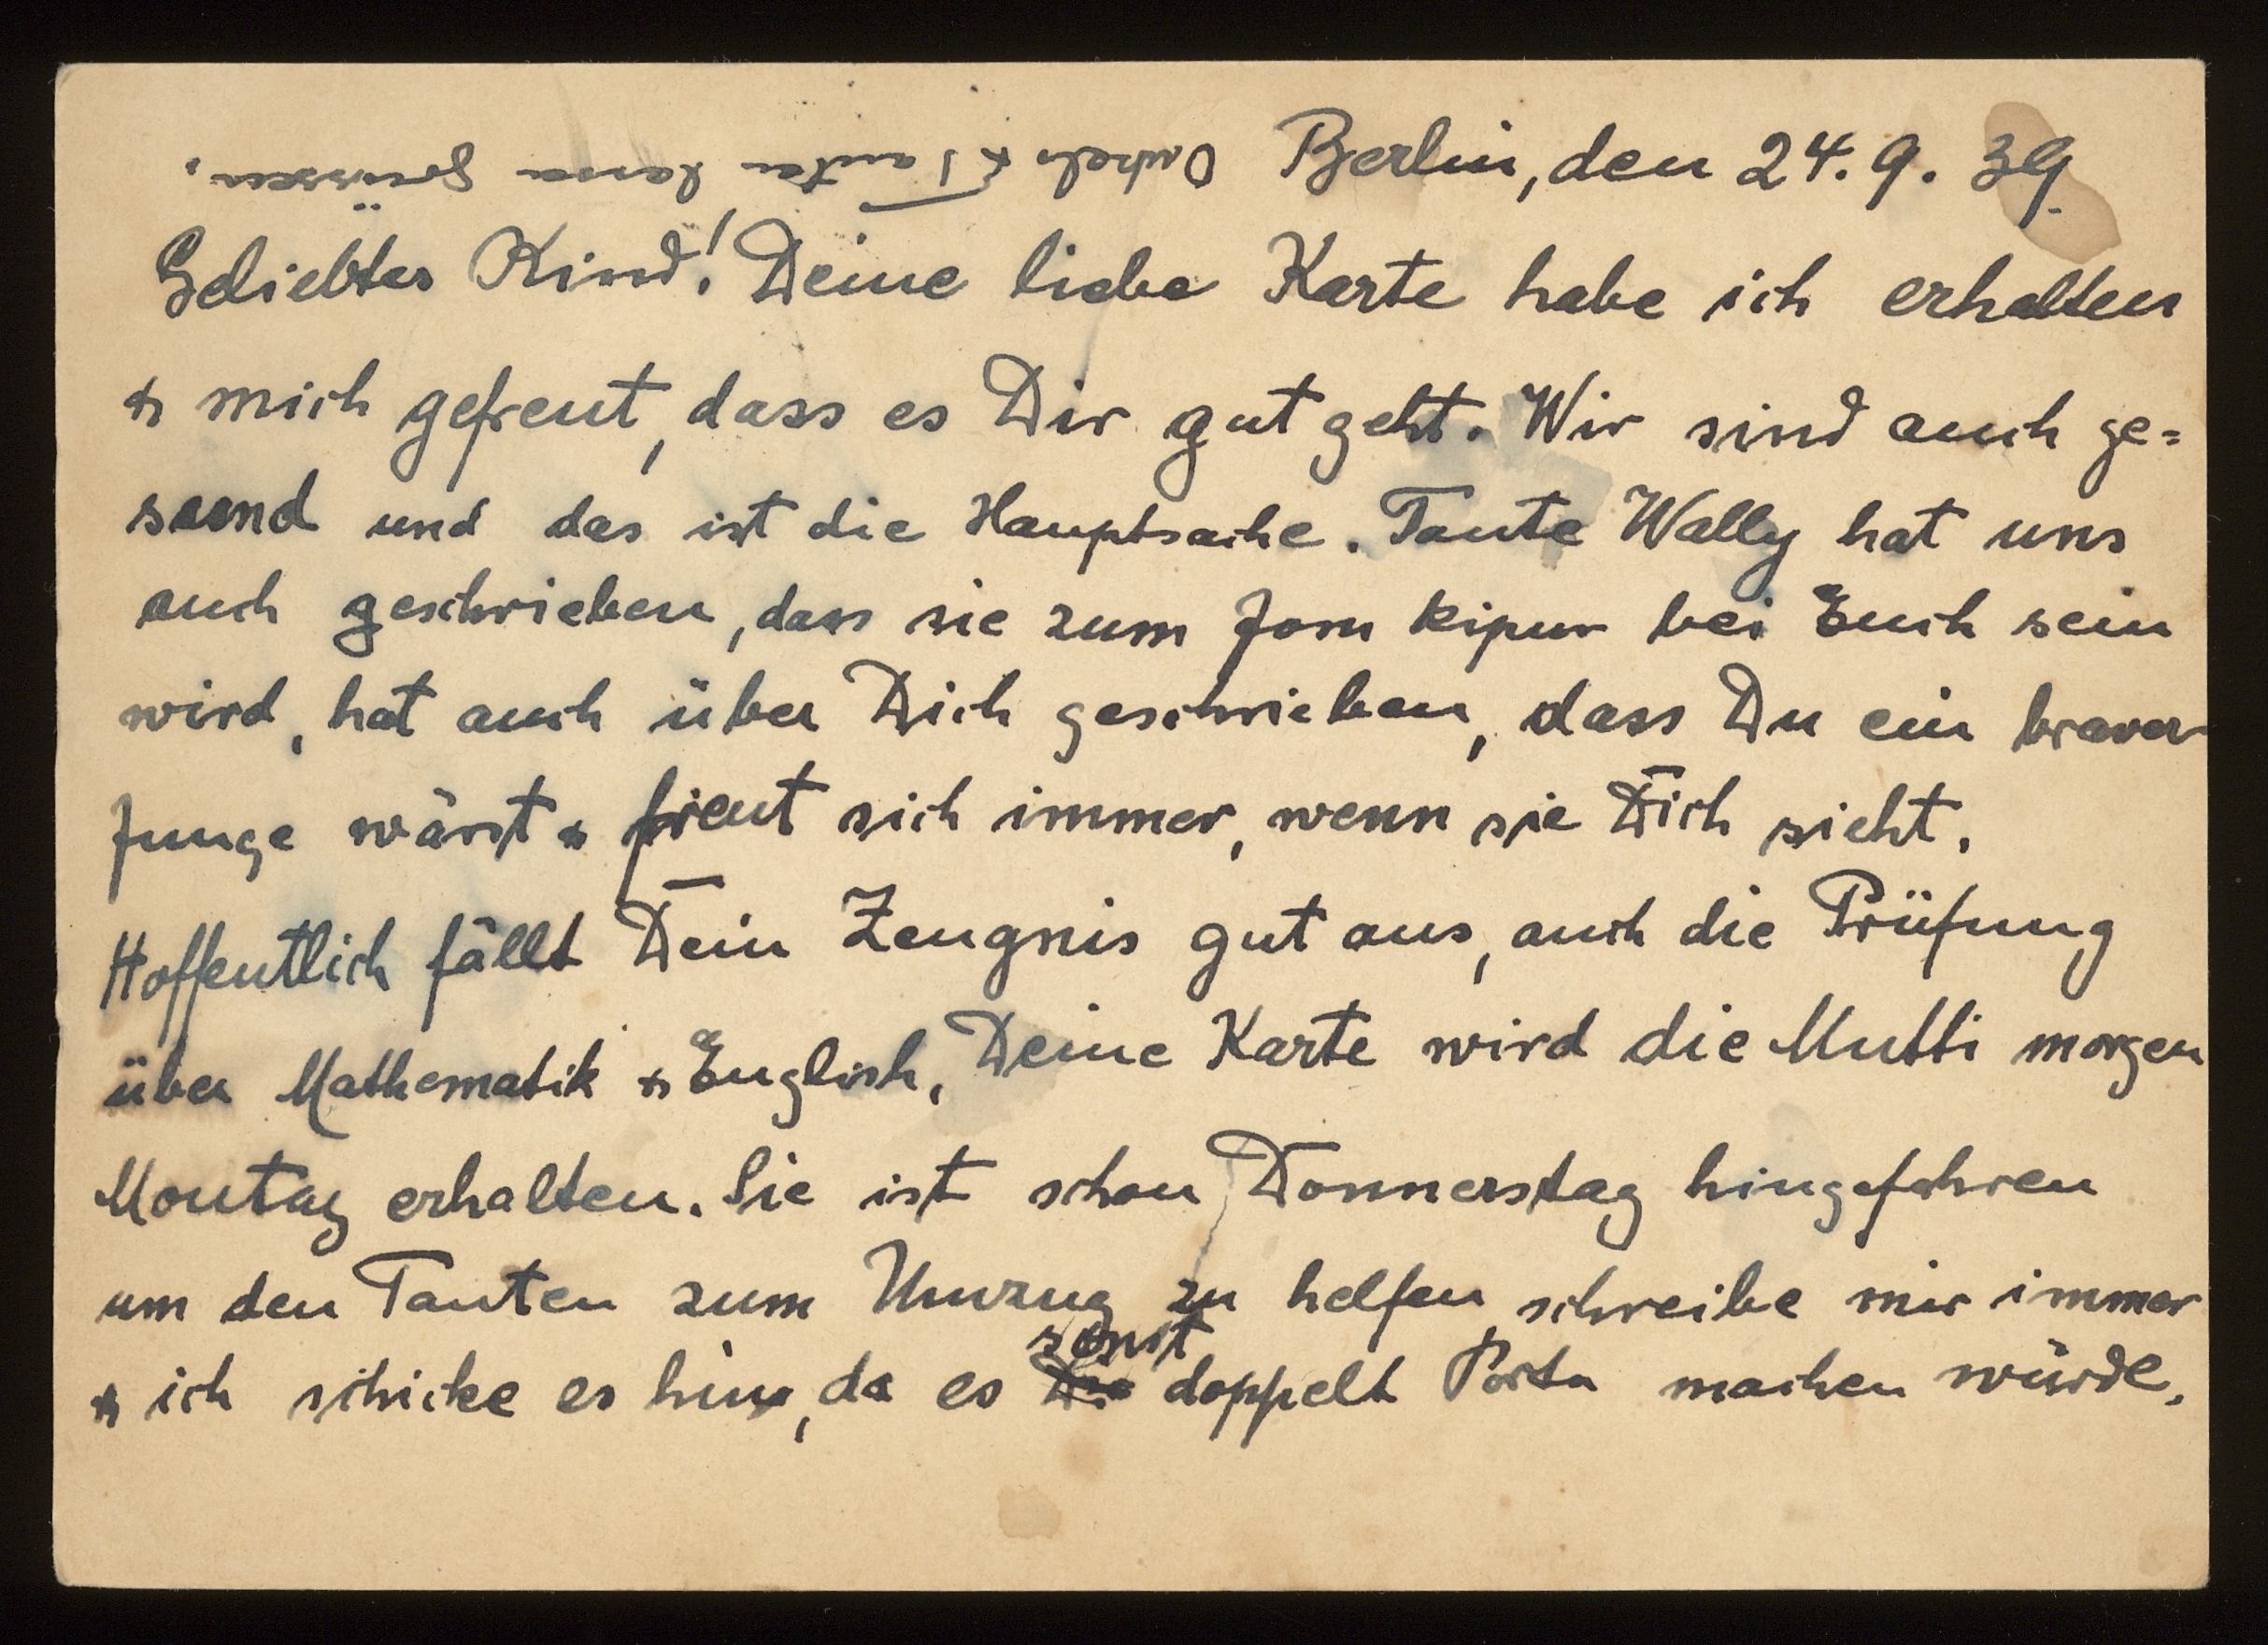 Berlin, den 24. 9. 39.
Geliebtes Kind! Deine liebe Karte habe ich erhalten
& mich gefreut, dass es Dir gut geht. Wir sind auch ge=
sund und das ist die Hauptsache. Tante Wally hat uns
auch geschrieben, dass sie zum Jom kipur bei Euch sein
wird, hat auch über Dich geschrieben, dass Du ein braver
Junge wärst & freut sich immer, wenn sie Dich sieht.
Hoffentlich fällt Dein Zeugnis gut aus, auch die Prüfung
über Mathematik & Englisch. Deine Karte wird die Mutti morgen
Montag erhalten. Sie ist schon Donnerstag hingefahren
um den Tanten zum Umzug zu helfen, schreibe mir immer
& ich schicke es hin, da es sonst doppelt Porto machen würde.
Onkels & Tanten lassen grüssen.